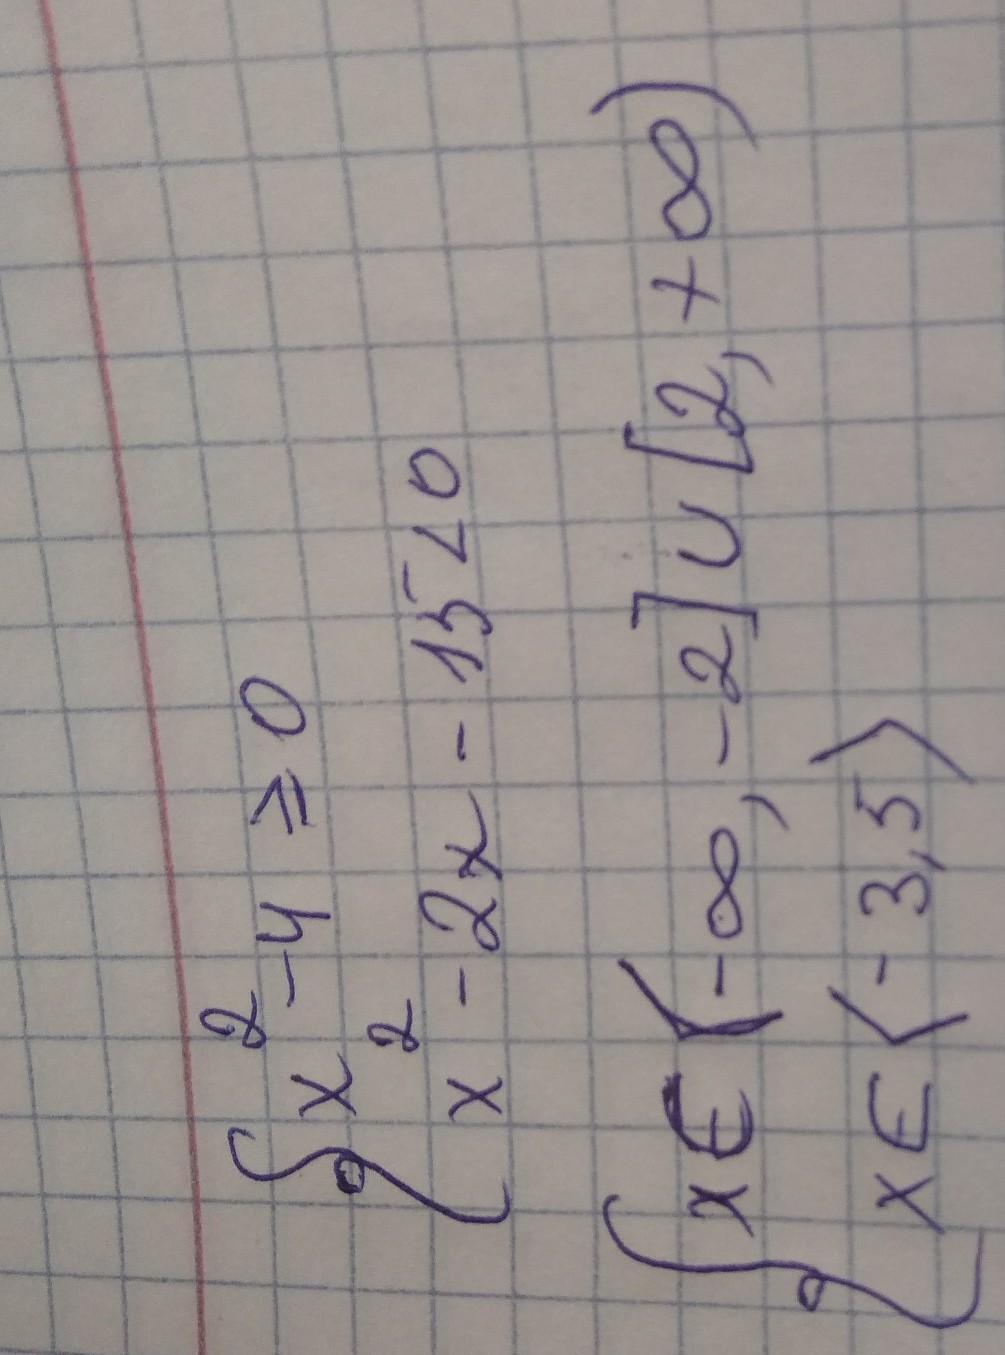 { x² - 4 ≥ 0
x² - 2x - 15 < 0
{ x ∈ ⟨-∞, -2] ∪ [2, +∞)
x ∈ ⟨-3, 5⟩